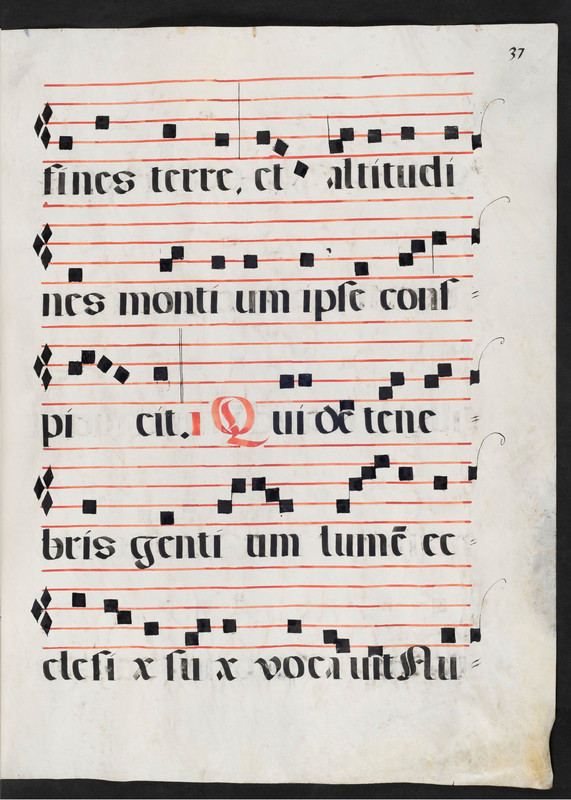 37
fines terre, et altitudi
nes monti um ipse cons =
pi cit. i Qui de tene =
bris genti um lumē ec =
clesi x su x vocauit Au =